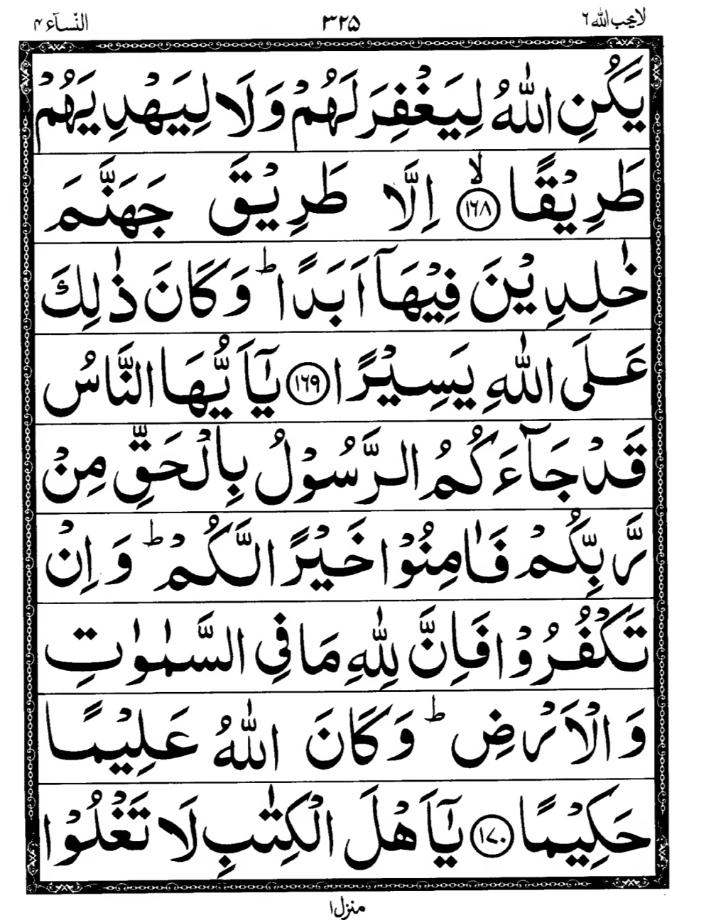 لا یحب اللہ ۶ ۳۲۵ النسآء ۴
يَكُنِ اللّٰهُ لِيَغْفِرَ لَهُمْ وَلَا لِيَهْدِيَهُمْ
طَرِيْقًا ۙ﴿۱۶۸﴾ اِلَّا طَرِيْقَ جَهَنَّمَ
خٰلِدِيْنَ فِيْهَاۤ اَبَدًا ؕ وَكَانَ ذٰلِكَ
عَلَى اللّٰهِ يَسِيْرًا ﴿۱۶۹﴾ يٰۤاَيُّهَا النَّاسُ
قَدْ جَآءَكُمُ الرَّسُوْلُ بِالْحَقِّ مِنْ
رَّبِّكُمْ فَاٰمِنُوْا خَيْرًا لَّكُمْ ؕ وَاِنْ
تَكْفُرُوْا فَاِنَّ لِلّٰهِ مَا فِى السَّمٰوٰتِ
وَالْاَرْضِ ؕ وَكَانَ اللّٰهُ عَلِيْمًا
حَكِيْمًا ﴿۱۷۰﴾ يٰۤاَهْلَ الْكِتٰبِ لَا تَغْلُوْا
منزل ۱